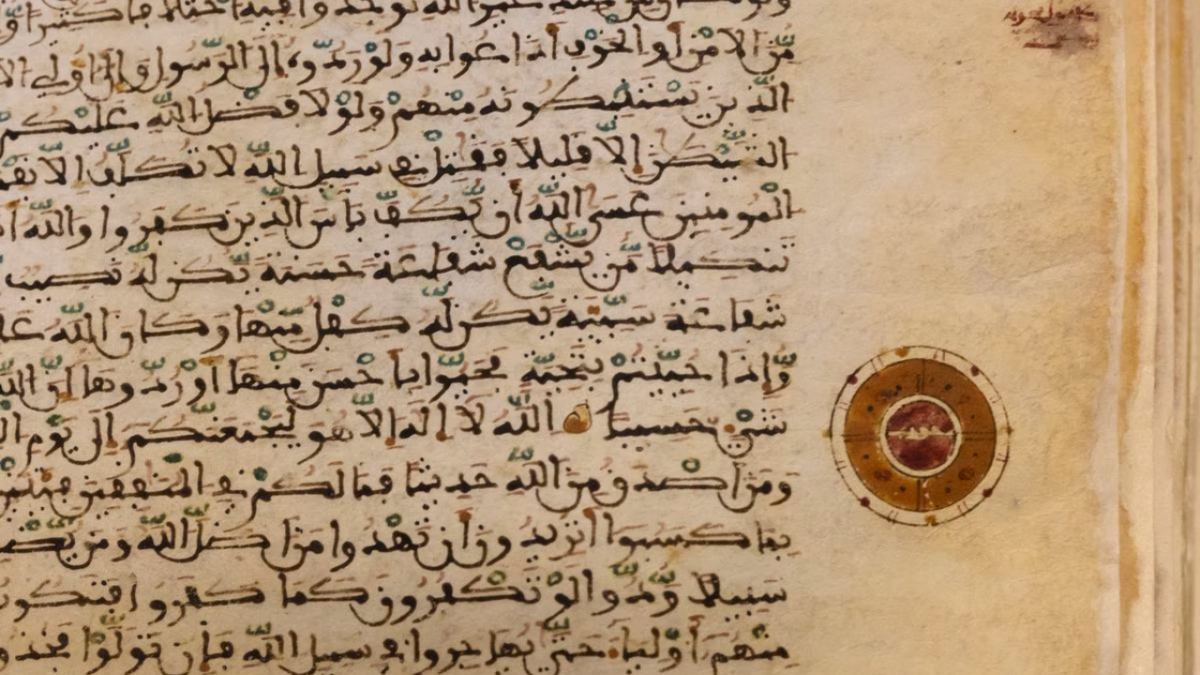 ولو كان من عند غير الله لوجدوا فيه اختلافا كثيرا
مّن الامن أو الخوف أذاعوا به ولو ردّوه إلى الرّسول وإلى أولي الا
الذين يستنبطونه منهم ولولا فضل الله عليكم
الشيطن إلّا قليلا فقتل في سبيل الله لا تكلّف الّا نفس
المومنين عسى الله أن يّكفّ بأس الذين كفروا والله أ
تنكيلا مّن يّشفع شفاعة حسنة يّكن له نصيب
شفاعة سيّئة يّكن له كفل مّنها وكان الله عل
وإذا حيّيتم بتحيّة فحيّوا باحسن منها أو ردّوها إنّ الله
شيء حسيبا الله لا اله الّا هو ليجمعنّكم إلى يوم ال
ومن اصدق من الله حديثا فما لكم في المنفقين فئتين
بما كسبوا اتريدون أن تهدوا من اضلّ الله ومن يّضل
سبيلا ودّوا لو تكفرون كما كفروا فتكون
منهم أولياء حتّى يهاجروا في سبيل الله فإن تولّوا فخذو